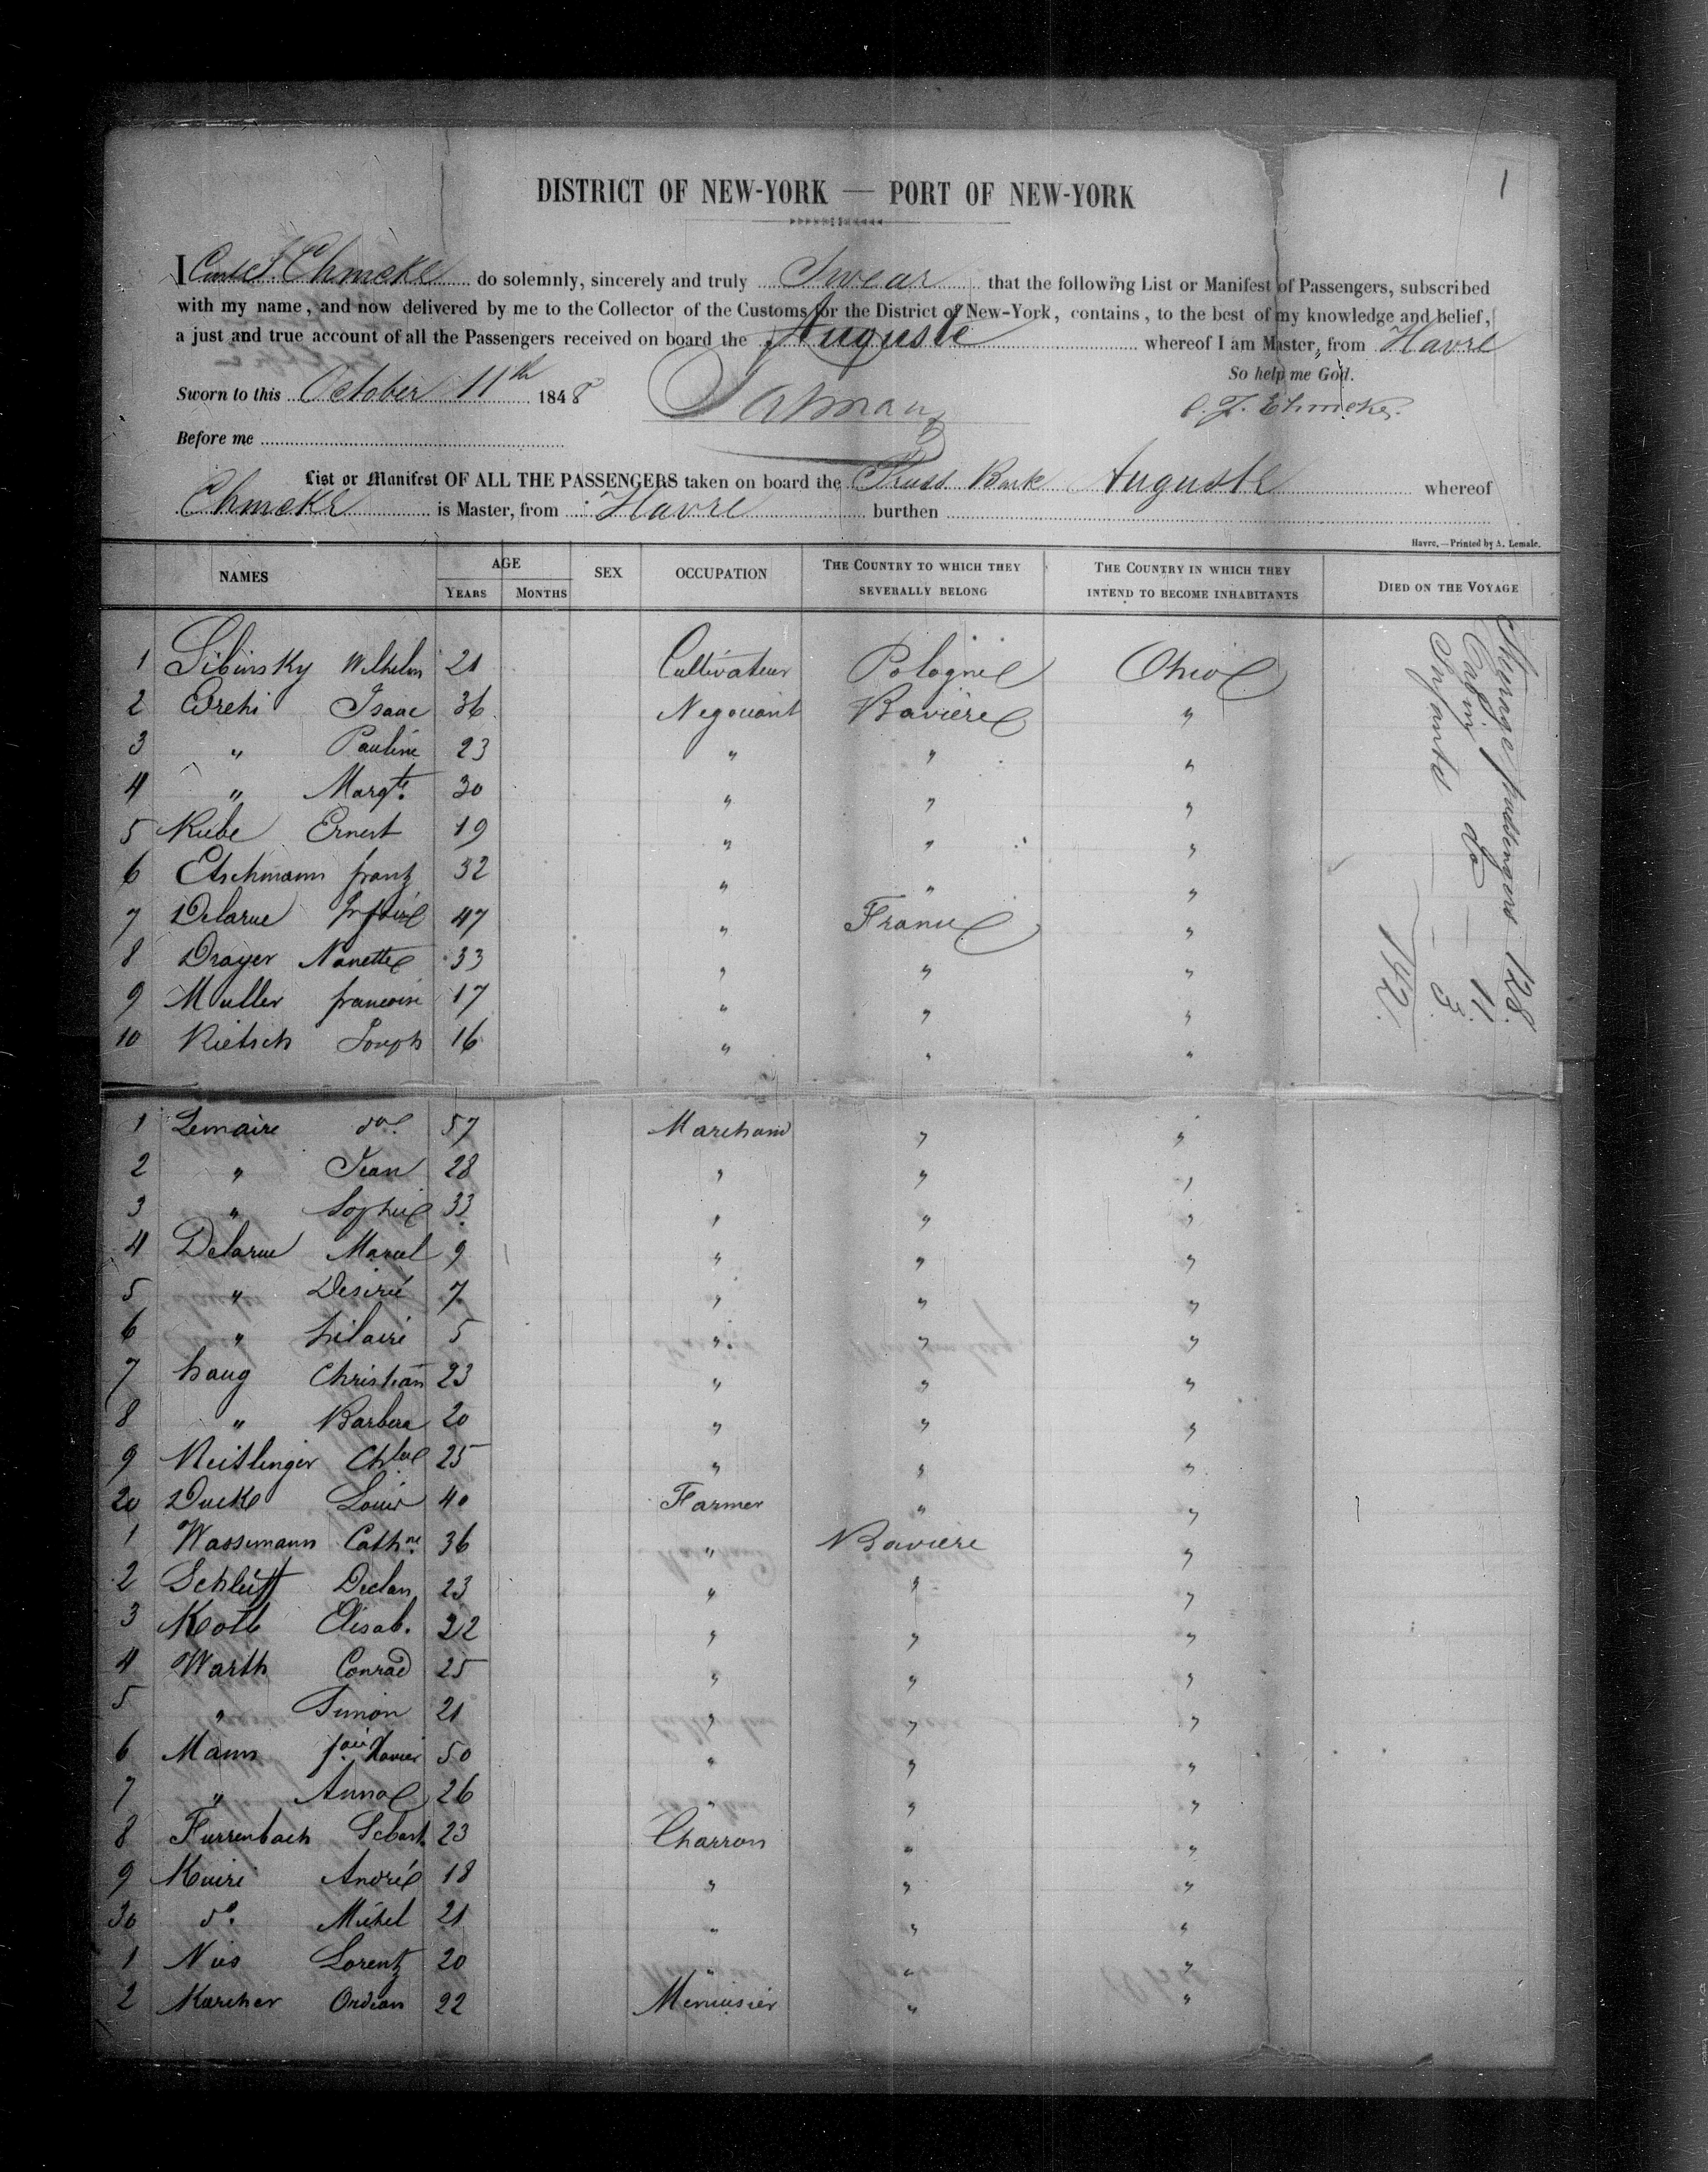 1
DISTRICT OF NEW-YORK — PORT OF NEW-YORK
I Ehmcke do solemnly, sincerely and truly Swear that the following List or Manifest of Passengers, subscribed
with my name, and now delivered by me to the Collector of the Customs for the District of New-York, contains, to the best of my knowledge and belief,
a just and true account of all the Passengers received on board the Auguste whereof I am Master, from Havre
So help me God.
Sworn to this October 11th 1848
C. F. Ehmcke.
Before me
List or Manifest OF ALL THE PASSENGERS taken on board the Pruss Bark Auguste whereof
Ehmcke is Master, from Havre burthen
Havre.—Printed by A. Lemale.
NAMES AGE YEARS MONTHS SEX OCCUPATION THE COUNTRY TO WHICH THEY SEVERALLY BELONG THE COUNTRY IN WHICH THEY INTEND TO BECOME INHABITANTS DIED ON THE VOYAGE
1 Sibinsky Wilhelm 21 Cultivateur Pologne Ohio
2 Isaac 36 Negociant Baviere "
3 " Pauline 23 " " "
4 " Margte. 30 " " "
5 Ernest 19 " " "
6 Etschmann franz 32 " " "
7 Delarue 47 " France "
8 Drayer Nanette 33 " " "
9 Muller francoise 17 " " "
10 Rietsch Joseph 16 " " "
1 Lemaire do. 57 Marchand " "
2 " Jean 28 " " "
3 " Sophie 33 " " "
4 Delarue Marcel 9 " " "
5 " Desiré 7 " " "
6 " hilaire 5 " " "
7 haug Christian 23 " " "
8 " Barbera 20 " " "
9 Reitlinger 25 " " "
20 Louis 40 Farmer " "
1 Wassemann Cathne. 36 " Baviere "
2 23 " " "
3 Elisab. 22 " " "
4 Warth Conrad 25 " " "
5 " Simon 21 " " "
6 Mann Xavier 50 " " "
7 " Anna 26 " " "
8 Furrenbach Sebast. 23 Charron " "
9 André 18 " " "
30 do. Michel 21 " " "
1 Lorentz 20 " " "
2 Karcher 22 Menuisier " "
Steerage passengers 128.
Cabin do — 11
Infants — 3
142.